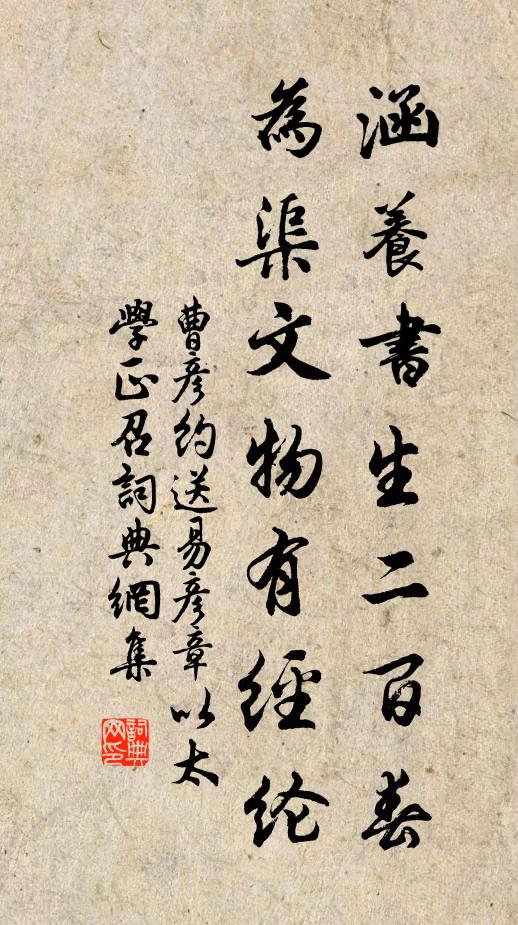 涵養書生二百春
為渠文物有經纶
曹彦約送易彦章以太
學正召詞典網集
詞典网印